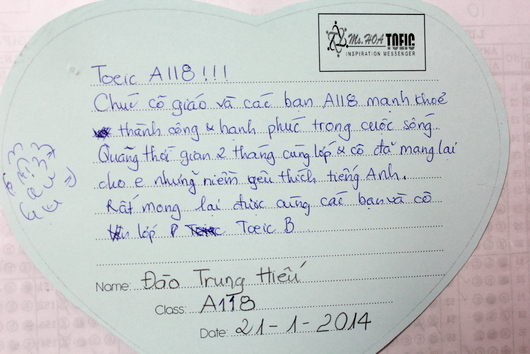 Ms. HOA TOEIC
INSPIRATION MESSENGER
Toeic A118 !!!
Chúc cô giáo và các bạn A118 mạnh khoẻ
thành công & hạnh phúc trong cuộc sống.
Quãng thời gian 2 tháng cùng lớp & cô đã mang lại
cho e những niềm yêu thích tiếng Anh.
Rất mong lại được cùng các bạn và cô
lớp Toeic B
Name: Đào Trung Hiếu
Class: A118
Date: 21-1-2014